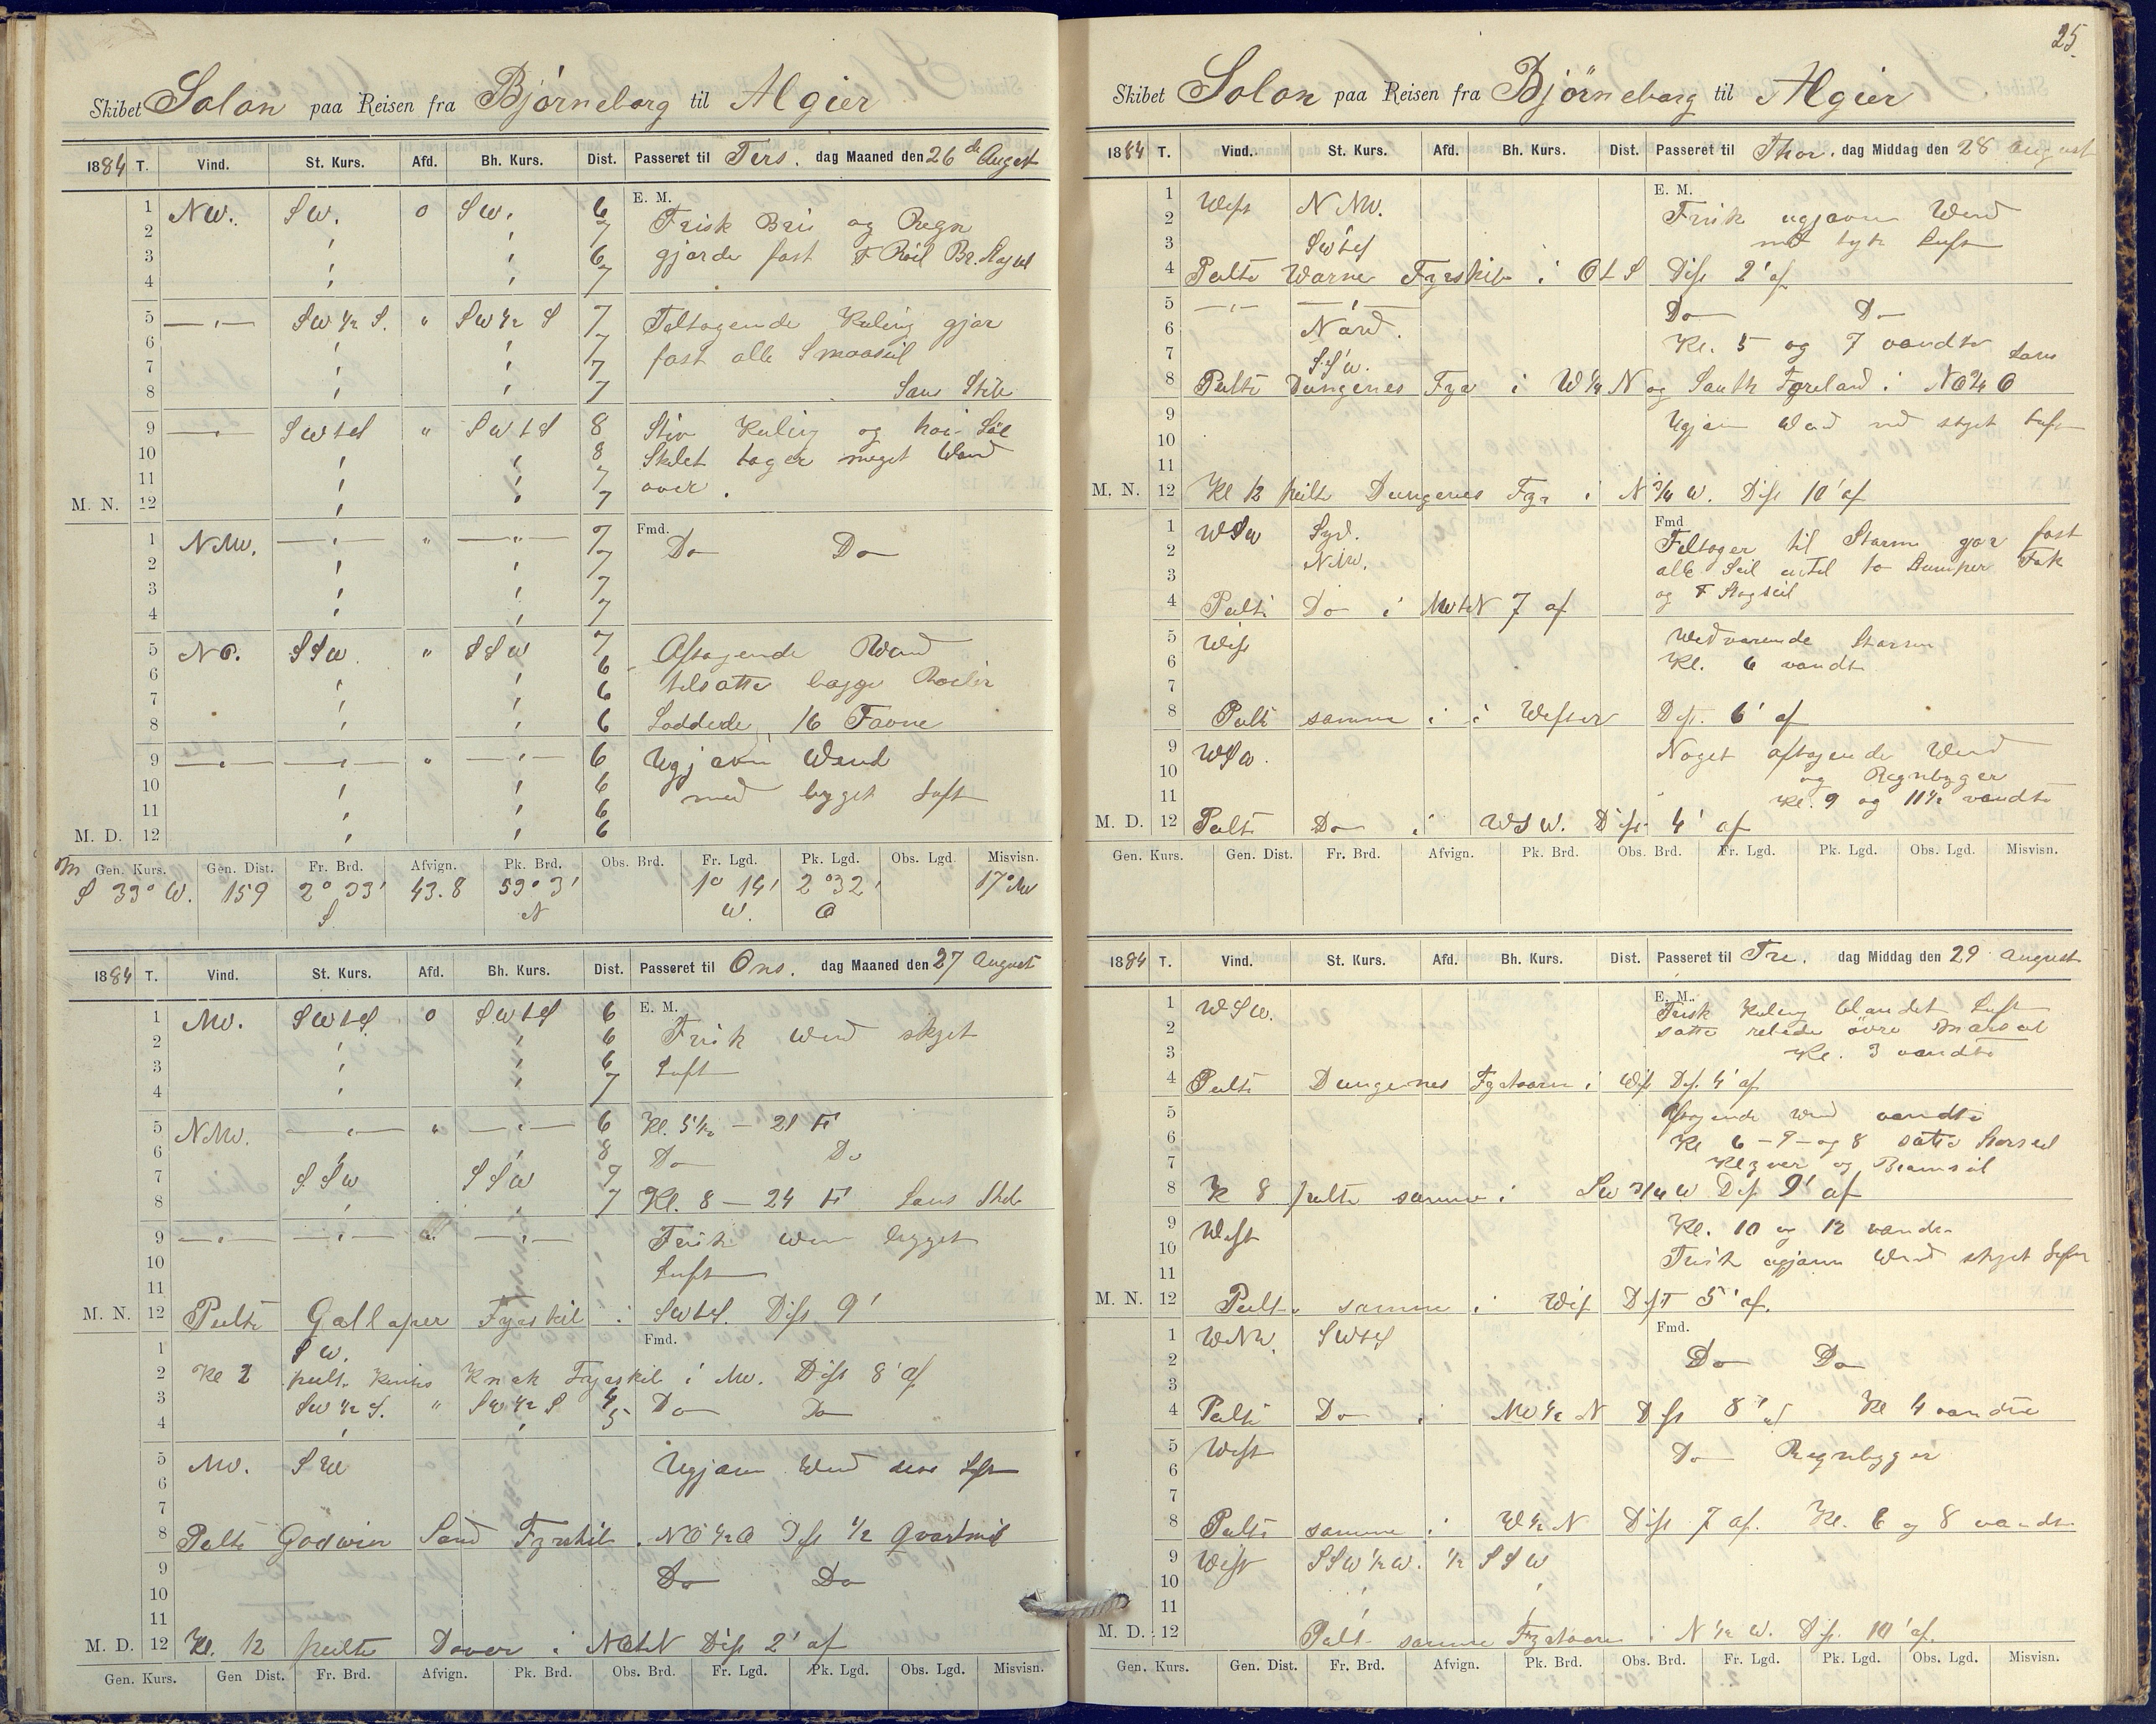 Skibet Solon paa Reisen fra Bjørneborg til Algier
1884 T. Vind. St. Kurs. Afd. Bh. Kurs. Dist. Passeret til Ters. dag Maaned den 26de August
E. M.
1 NW. SW. 0 SW. 6 Frisk Bris og Regn
2 " " 7
3 " " 6 gjorde fast F Röil Br. Stagseil
4 " " 7
5 —"— SW ½ S. " SW ½ S 7 Tiltagende Kuling gjør
6 " " 7 fast alle Smaaseil
7 " " 7
8 " " 7 Lans Stik
9 —"— SWtS " SWtS 8 Stiv Kuling og høi Søe
10 " " 8 Skibet tager meget Vand
11 " " 7 over.
M. N. 12 " " 7
Fmd.
1 NNW. —"— " —"— 7 Do Do
2 " " 7
3 " " 7
4 " " 7
5 NO. SSW. " SSW 7 Aftagende Wind
6 " " 6 tilsatte begge Röiler
7 " " 6
8 " " 6 Loddede 16 Favne
9 —"— —"— " —"— 6 Ugjævn Wend
10 " " 6 med bygget Luft
11 " " 6
M. D. 12 " " 6
Gen. Kurs. Gen. Dist. Fr. Brd. Afvign. Pk. Brd. Obs. Brd. Fr. Lgd. Pk. Lgd. Obs. Lgd. Misvisn.
S 33° W. 159 2° 33' 43.8 53° 3' 1° 14' 2° 32' 17° NW
S. N W. O
1884 T. Vind. St. Kurs. Afd. Bh. Kurs. Dist. Passeret til Ons. dag Maaned den 27 August
E. M.
1 NW. SWtS. 0 SWtS 6
2 " " 6 Frisk Wend skyet
3 " " 6 Luft
4 " " 7
5 NNW. —"— " —"— 6 Kl. 5½ — 21 F
6 8 Do Do
7 SSW SSW 7
8 " " 7 Kl. 8 — 24 F Lans Stik
9 —"— —"— " —"— Frisk Wen bygget
10 Luft
11
M. N. 12 Peilte Gallaper Fyrskib i SWtS. Dist 9'
Fmd.
1 SW.
2 Kl 2 peilte Kentis Knok Fyrskib i NW. Dist 8' af
3 SW ½ S. " SW ½ S 4 Do Do
4 " " 5
5 NW. SW Ugjævn Wend Luft
6
7
8 Peilte Godwin Sand Fyrskib i NO ½ O Dist ½ Qvartmil
9 Do Do
10
11
M. D. 12 Kl. 12 peilte Dover i NOtN Dist 2' af
Gen. Kurs. Gen Dist. Fr. Brd. Afvign. Pk. Brd. Obs. Brd. Fr. Lgd. Pk. Lgd. Obs. Lgd. Misvisn.
25.
Skibet Solon paa Reisen fra Bjørneborg til Algier
1884 T. Vind. St. Kurs. Afd. Bh. Kurs. Dist. Passeret til Thor. dag Middag den 28 August
E. M.
1 West NNW. Frisk ugjævn Wend
2 med tyk Luft
3 SWtS
4 Peilte Warne Fyrskib i OtS Dist 2' af
5 —"— —"— Do Do
6 Nord. Kl. 5 og 7 vendte
7 SSW.
8 Peilte Dungenes Fyr i W ¼ N og South Foreland i NO ¾ O
9 Ugjævn Wend med skyet Luft
10
11
M. N. 12 Kl 12 peilte Dungenes Fyr i N ¾ W. Dist 10' af
Fmd
1 WSW Syd. Tiltager til Storm gør fast
2 NNW. alle Seil untal to Dumper Fok
3 og F Stagseil
4 Peilte Do i NWtN 7 af
5 West Wedvarende Storm
6 Kl. 6 vendte
7
8 Peilte samme i i Wester Dist. 6' af
9 WSW. Noget aftagende Wend
10 og Regnbyger
11 Kl. 9 og 11½ vendte
M. D. 12 Peilte Do i WSW. Dist 4' af
Gen. Kurs. Gen. Dist. Fr. Brd. Afvign. Pk. Brd. Obs. Brd. Fr. Lgd. Pk. Lgd. Obs. Lgd. Misvisn.
1884 T. Vind. St. Kurs. Afd. Bh. Kurs. Dist. Passeret til Fre. dag Middag den 29 August
E. M.
1 WSW. Frisk Kuling blandet Luft
2 satte rebede övre Märseil
3 Kl. 3 vendte
4 Peilte Dungenes Fyrtaarn i West Dist. 4' af
5 Aftagende Wend vendte
6 Kl 6 – 7 – og 8 satte Storseil
7 Klyver og Bramseil
8 K 8 peilte samme i SW ¾ W Dist 9' af
9 West Kl. 10 og 12 vendte
10 Frisk ugjævn Wend skyet Luft
11
M. N. 12 Peilte samme i West Dist 5' af.
Fmd.
1 WNW. SWtS
2 Do Do
3
4 Peilte Do i NW ½ N Dist 8' af Kl 4 vendte
5 West Do Regnbyger
6
7
8 Peilte samme i W ½ N Dist 7 af. Kl. 6 og 8 vendte
9 West SSW ½ W. ½ SSW
10 " "
11 " "
M. D. 12 Peilte samme Fyrtaarn i N ½ W. Dist. 10' af.
Gen. Kurs. Gen. Dist. Fr. Brd. Afvign. Pk. Brd. Obs. Brd. Fr. Lgd. Pk. Lgd. Obs. Lgd. Misvisn.